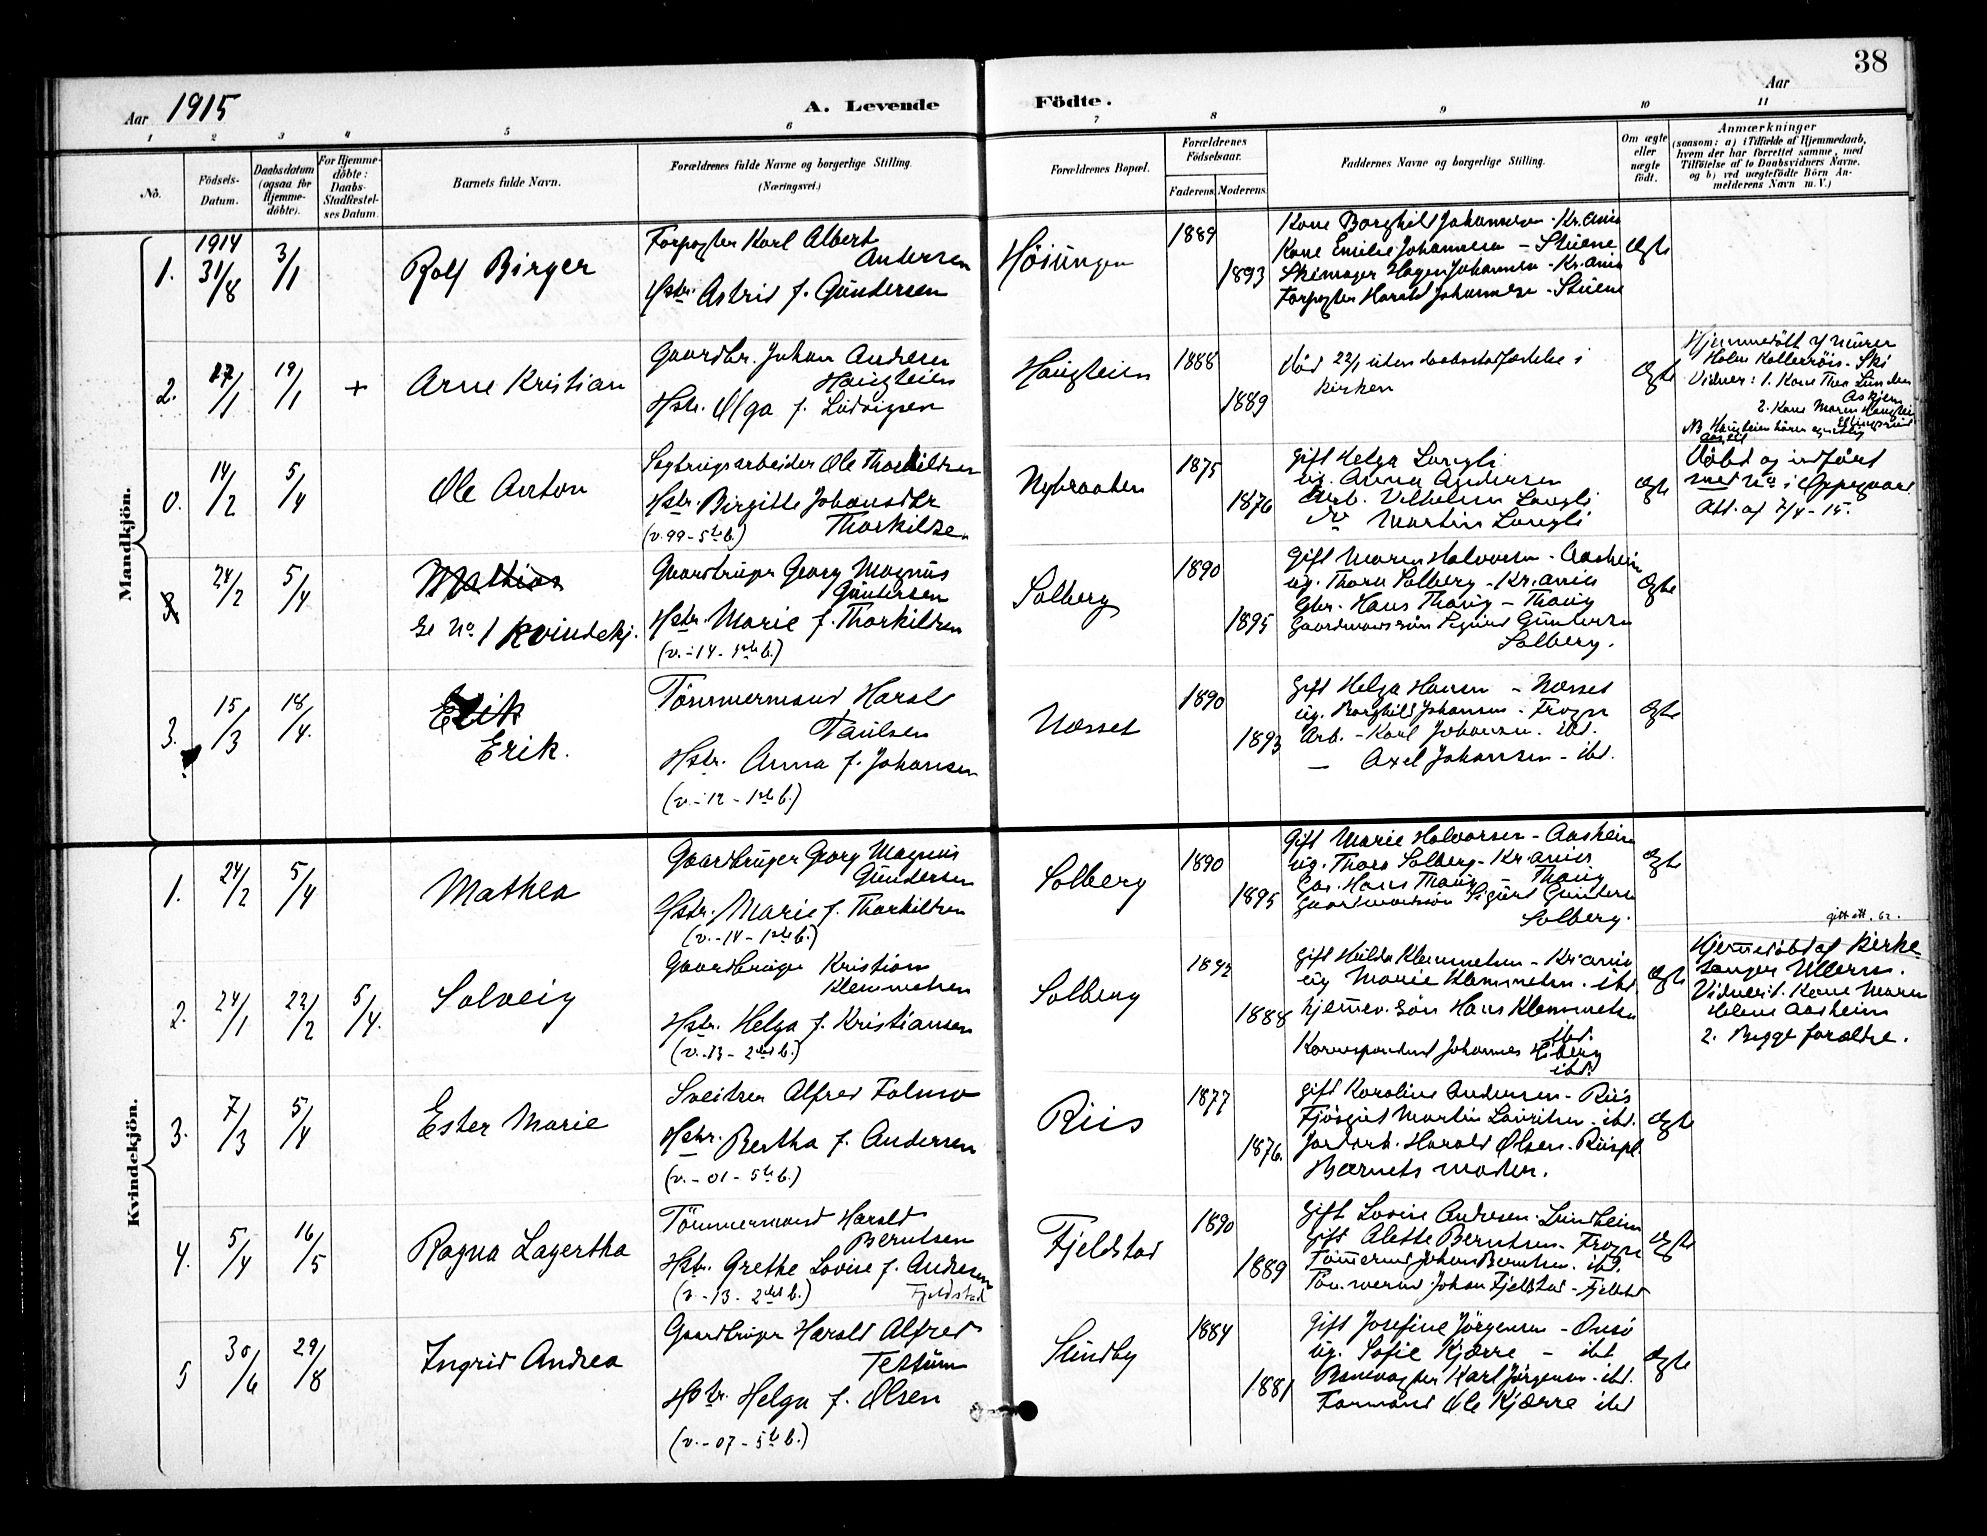 38
Aar 1915
A. Levende Födte.
Aar
1 2 3 4 5 6 7 8 9 10 11
No.
Födsels-Datum.
Daabsdatum (ogsaa for Hjemme-döbte).
For Hjemme-döbte: Daabs-Stadfæstel-ses Datum.
Barnets fulde Navn.
Forældrenes fulde Navne og borgerlige Stilling. (Næringsvei.)
Forældrenes Bopæl.
Forældrenes Födselsaar.
Faderens. Moderens.
Faddernes Navne og borgerlige Stilling.
Om ægte eller uægte födt.
Anmærkninger
(saasom: a) i Tilfælde af Hjemmedaab,
hvem der har forrettet samme, med
Tilföielse af to Daabsvidners Navne,
og b) ved uægtefödte Börn An-
melderens Navn m. V.)
Mandkjön.
1. 1914 31/8 3/1
Rolf Birger
Forpagter Karl Albert
Andersen
Hstr. Astrid f. Gundersen
Höiungen
1889
1893
Kone Borghild Johannesen - Kr.ania
Kone Emilie Johannesen - Stuene
Skomager Hagen Johannesen - Kr.ania
Forpagter Harald Johannesen - Stuene
Ægte
2. 17/1 19/1 +
Arne Kristian
Gaardbr. Johan Andresen
Haugteien
Hstr. Olga f. Ludvigsen
Haugteien
1888
1889
Död 22/1 uten daabsstadfæstelse i
kirken
Ægte
Hjemmedöbt af murer
Holm Kollerröis - Ski
Vidner: 1. Kone Thea Lunden
Askjem
2. Kone Maren Haugtei
NB Haugteien hörer egentlig
0. 14/2 5/4
Ole Anton
Sagbrugsarbeider Ole Thorkildsen
Hstr. Birgitte Johansdtr
Thorkilsen
(v. 99 - 5te b.)
Nybraaten
1875
1876
Gift Helga Langli
ug. Anna Andersen
Arb. Vilhelm Langli
do Martin Langli
Ægte
Döbt og indført
med No i Oppegaard
Att. af 7/4 - 15.
3 24/2 5/4
Mathias
Se No 1 Kvindekj.
Gaardbruger Georg Magnus
Gundersen
Hstr. Marie f. Thorkildsen
(v. - 14 - 1ste b.)
Solberg
1890
1895
Gift Maren Halvorsen - Aasheim
ug. Thora Solberg - Kr.ania
Gbr. Hans Thaug - Thaug
Gaardmandssön Sigurd Gundersen
Solberg.
Ægte
3. 15/3 18/4.
Erik
Erik.
Tömmermand Harald
Paulsen
Hstr. Anna f. Johansen
(v. - 12 - 1ste b.)
Næsset
1890
1893
Gift Helga Hansen - Næsset
ug. Borghild Johansen - Frogn
Arb. - Karl Johansen. ibd.
— Axel Johansen - ibd.
Ægte
Kvindekjön.
1. 24/2 5/4
Mathea
Gaardbruger Georg Magnus
Gundersen
Hstr. Marie f. Thorkildsen
(v. - 14 - 1ste b.)
Solberg
1890
1895
Gift Marie Halvorsen - Aasheim
ug. Thora Solberg - Kr.ania
Gbr. Hans Thaug - Thaug
Gaardmandssön Sigurd Gundersen
Solberg.
Ægte
2. 24/1 22/2 5/4.
Solveig
Gaardbruger Kristian
Klemmetsen
Hstr. Helga f. Kristiansen
(v. - 13 - 2det b.)
Solberg
1892
1888
Gift Hulda Klemmetsen - Kr.ania
ug Marie Klemmetsen - ibd.
hjemmev. sön Hans Klemmetsen
ibd.
Korrespondent Johannes
ibd.
Ægte
gift att. 62.
Hjemmedöbt af kirke-
sanger Ullern.
Vidner: 1. Kone Maren
Helene Aasheim
2. Begge forældre.
3. 7/3 5/4
Ester Marie
Sveitser Alfred Folmo
Hstr. Bertha f. Andersen
(v. - 01 - 5te b.)
Riis
1877
1876.
Gift Karoline Andersen - Riis
Fjösgut Martin Lauritsen - ibd.
Jordarb. Harald Olsen - Riispl.
Barnets moder.
Ægte
4. 5/4 16/5
Ragna Lagertha
Tömmermand Harald
Berntsen
Hstr. Grethe Lovise f. Andresen
(v. - 13 - 2det b.) Fjeldstad
Fjeldstad
1890
1889
Gift Lovise Andresen - Lundheim
Gift Alette Berntsen - Frogn
Tömmermd Johan Berntsen. ibd.
Tömmermd. Johan Fjeldstad - Fjeldstad
Ægte
5 30/6 29/8
Ingrid Andrea
Gaardbruger Harald Alfred
Tettum
Hstr. Helga f. Olsen
(v. - 07 - 5te b.)
Sundby
1884
1881
Gift Josefine Jörgensen - Onsö
ug. Sofie Kjærre - ibd
Banevogter Karl Jörgensen - ibd.
Formand Ole Kjærre ibd
Ægte